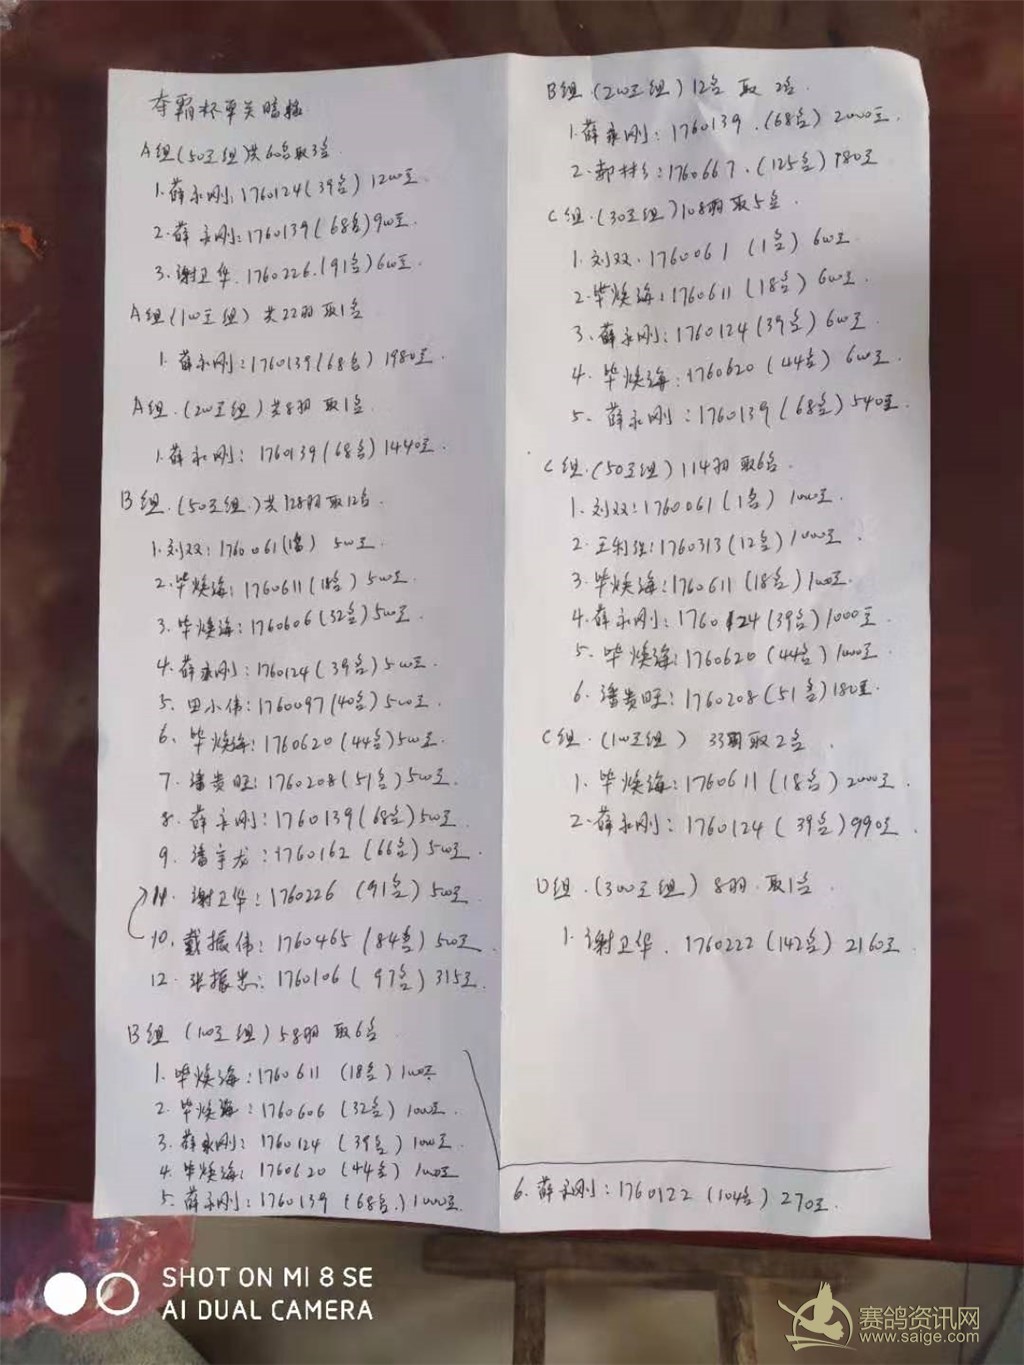 夺霸杯单关暗插
A组(50元组)共60名取3名
1.薛永刚:1760124(39名)1200元.
2.薛永刚:1760139(68名)900元.
3.谢卫华.1760226.(91名)600元.
A组(100元组)共22羽取1名
1.薛永刚:1760139(68名)1980元.
A组.(200元组)共8羽取1名
1.薛永刚:1760139(68名)1440元.
B组.(50元组.)共128羽取12名
1.刘双:1760061(1名)500元.
2.毕焕海:1760611(18名)500元.
3.毕焕海:1760606(32名)500元.
4.薛永刚:1760124(39名)500元.
5.田小伟:1760097(40名)500元.
6、毕焕海:1760620(44名)500元.
7.潘贵旺:1760208(51名)500元.
8.薛永刚:1760139(68名)500元.
9.潘宇龙:1760162(66名)500元.
11.谢卫华:1760226(91名)500元.
10.戴振伟:1760465(84名)500元.
12.张振忠:1760106(97名)315元.
B组(100元组)58羽取6名
1.毕焕海:1760611(18名)1000元
2.毕焕海:1760606(32名)1000元.
3.薛永刚:1760124(39名)1000元.
4.毕焕海:1760620(44名)1000元
5.薛永刚:1760139(68名.)1000元.
B组(200元组)12名取2名.
1.薛永刚:1760139.(68名)2000元.
2.郝:1760667.(125名)980元
C组.(30元组)108羽取5名.
1.刘双.1760061(1名)600元.
2.毕焕海:1760611(18名)600元.
3.薛永刚:1760124(39名)600元.
4.毕焕海:1760620(44名)600元.
5.薛永刚:1760139(68名)540元.
C组.(50元组)114羽取6名.
1.刘双:1760061(1名)1000元.
2.王利强:1760313(12名)1000元.
3.毕焕海:1760611(18名)1000元.
4.薛永刚:1760124(39名)1000元
5.毕焕海:1760620(44名)1000元.
6.潘贵旺:1760208(51名)180元.
C组.(100元组)33羽取2名.
1.毕焕海:1760611(18名)2000元.
2.薛永刚:1760124(39名)990元.
D组.(300元组)8羽.取1名.
1.谢卫华.1760222(142名)2160元.
6.薛永刚:1760122(104名)270元.
SHOT ON MI 8 SE
AI DUAL CAMERA
赛鸽资讯网
www.saige.com